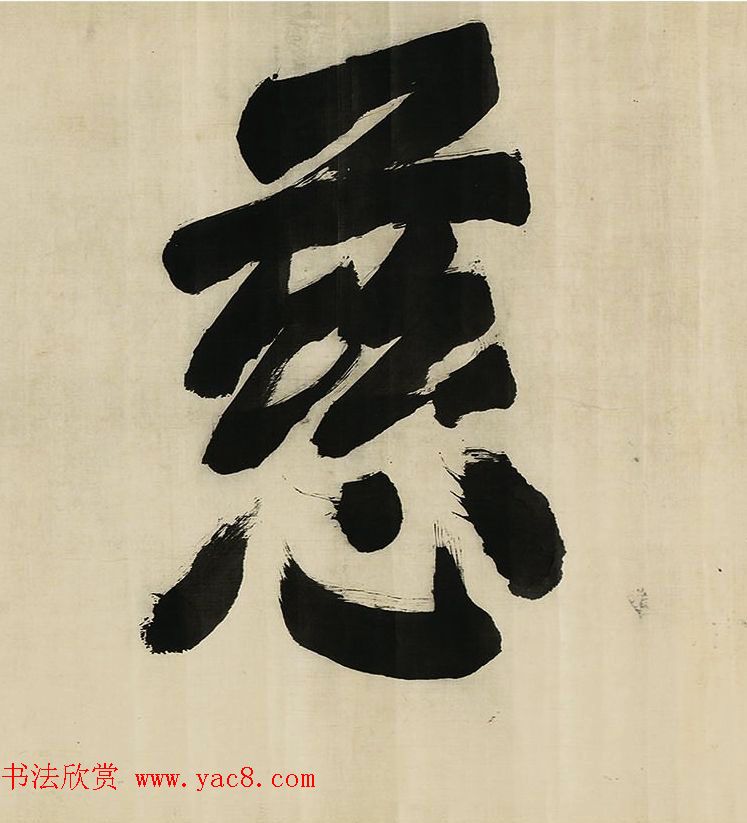 慈
书法欣赏 www.yac8.com